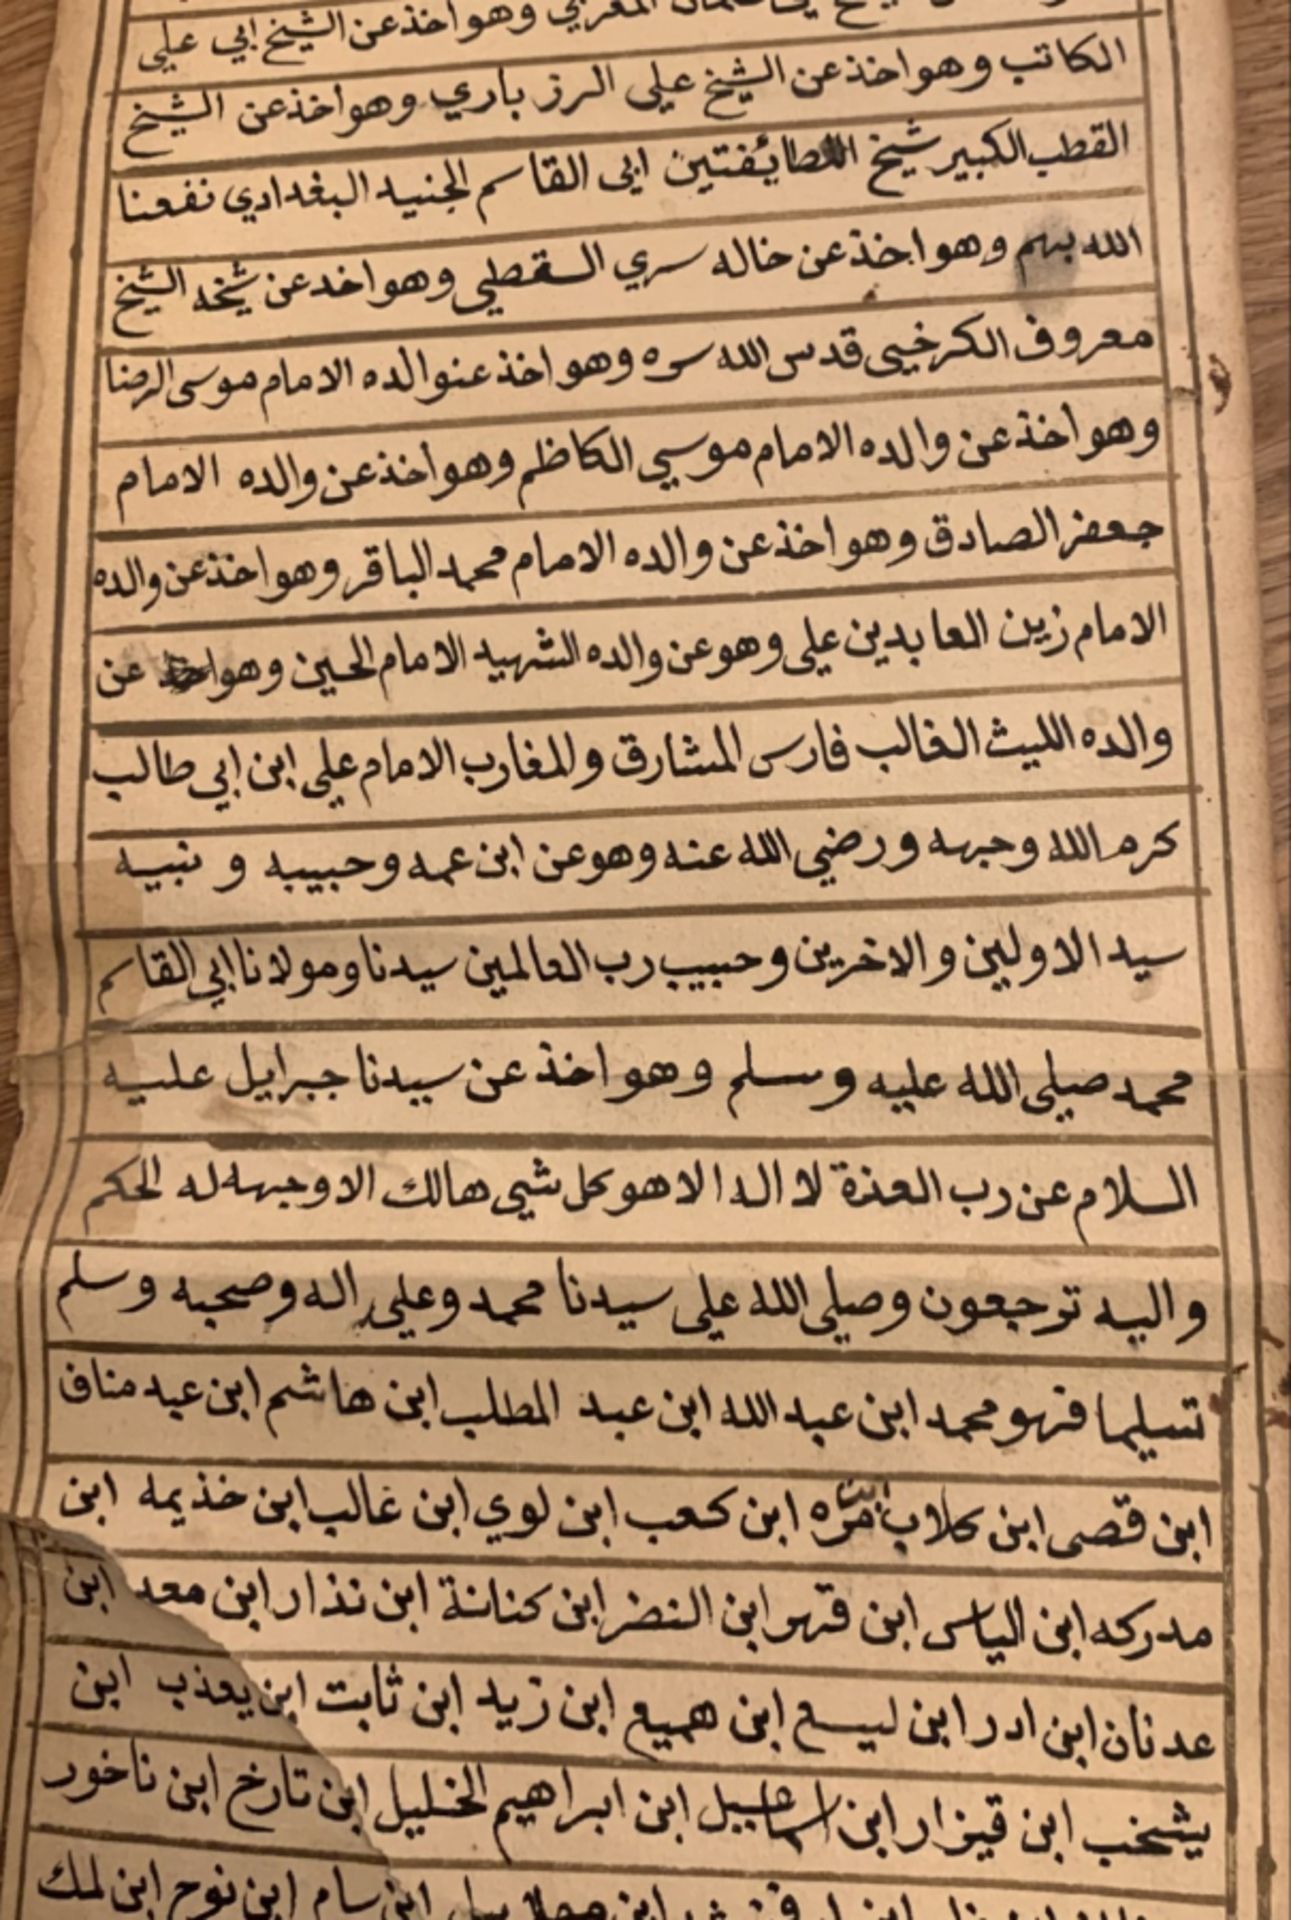 المغربي وهو اخذ عن الشيخ ابي علي
الكاتب وهو اخذ عن الشيخ علي الرز باري وهو اخذ عن الشيخ
القطب الكبير شيخ الطائفتين ابي القاسم الجنيد البغدادي نفعنا
الله بهم وهو اخذ عن خاله سري السقطي وهو اخد عن شيخه الشيخ
معروف الكرخيي قدس الله سره وهو اخذ عنوالده الامام موسى الرضا
وهو اخذ عن والده الامام موسي الكاظم وهو اخذ عن والده الامام
جعفر الصادق وهو اخذ عن والده الامام محمد الباقر وهو اخذ عن والده
الامام زين العابدين علي وهو عن والده الشهيد الامام الحسين وهو اخذ عن
والده الليث الغالب فارس المشارق والمغارب الامام علي ابن ابي طالب
كرم الله وجهه ورضي الله عنه وهو عن ابن عمه وحبيبه و نبيه
سيد الاولين والاخرين وحبيب رب العالمين سيدنا ومولانا ابي القاسم
محمد صيلي الله عليه وسلم وهو اخذ عن سيدنا جبرايل عليه
السلام عن رب العذة لا اله الا هو كل شيي هالك الا وجهه له الحكم
واليه ترجعون وصيلي الله علي سيدنا محمد وعلي اله وصحبه وسلم
تسيلما فهو محمد ابن عبد الله ابن عبد المطلب ابن هاشم ابن عبد مناف
ابن قصى ابن كلاب ابن مره ابن كعب ابن لوي ابن غالب ابن خذيمه ابن
مدركه ابن الياس ابن فهر ابن النضر ابن كنانة ابن نذار ابن معد ابن
عدنان ابن ادر ابن ليسع ابن هميع ابن زيد ابن ثابت ابن يعذب ابن
يشخب ابن قيزار ابن اسماعيل ابن ابراهيم الخليل ابن تارخ ابن ناخور
ابن سام ابن نوح ابن لمك